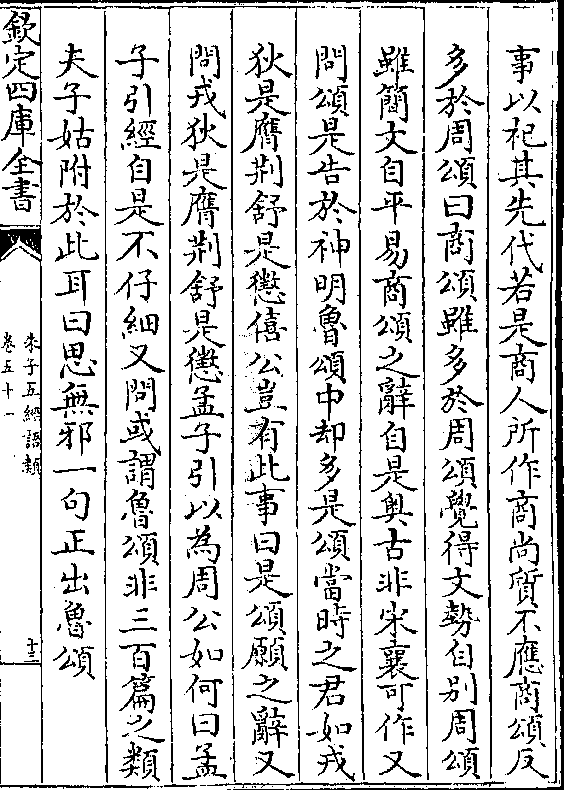 事以祀其先代若是商人所作商尚質不應商頌反
多於周頌曰商頌雖多於周頌覺得文勢自别周頌
雖簡文自平易商頌之辭自是奥古非宋襄可作又
問頌是告於神明魯頌中却多是頌當時之君如戎
狄是膺荆舒是懲僖公豈有此事曰是頌願之辭又
問戎狄是膺荆舒是懲孟子引以為周公如何曰孟
子引經自是不仔細又問或謂魯頌非三百篇之類
夫子姑附於此耳曰思無邪一句正出魯頌
欽定四庫全書
朱子五經語類
卷五十一
十三